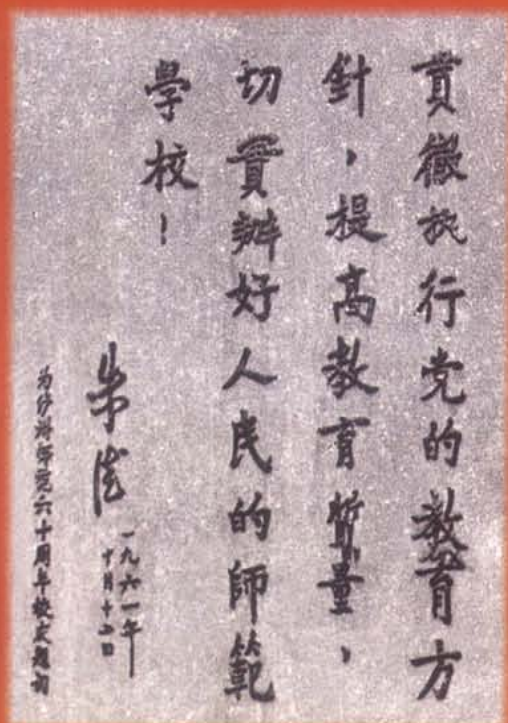 貫徹执行党的教育方
針，提高教育質量，
切實辦好人民的師範
學校！
朱德
一九六一年
十月十二日
为师范六十周年校庆题词